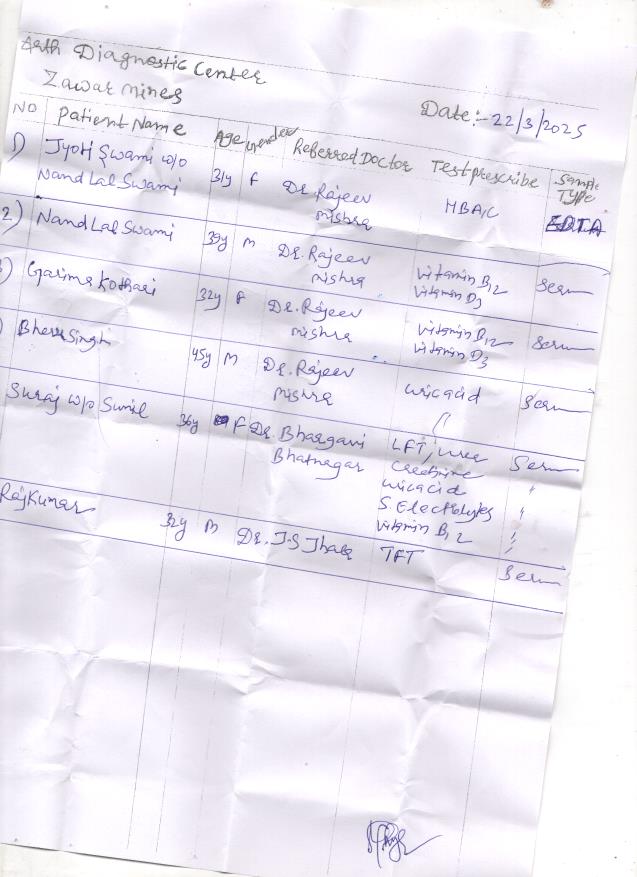 Arth Diagnostic Center
Zawar mines
Date:- 22/3/2025
NO Patient Name Age Gender Referred Doctor Test prescribe Sample TYPE
1) Jyoti Swami w/o Nand Lal Swami 31y F Dr. Rajeev mishra HBA1C EDTA
2) Nand Lal Swami 39y M Dr. Rajeev mishra vitamin B12 vitamin D3 Serum
) Garima Kothari 32y F Dr. Rajeev mishra vitamin B12 vitamin D3 Serum
) Bheru Singh 45y M Dr. Rajeev mishra uric acid Serum
Suraj w/o Sunil 36y F Dr. Bhargavi Bhatnagar LFT, urea Serum
Creatinine "
uric acid
S. Electrolytes "
vitamin B12 "
RajKumar 32y M Dr. J.S Jhala TFT Serum